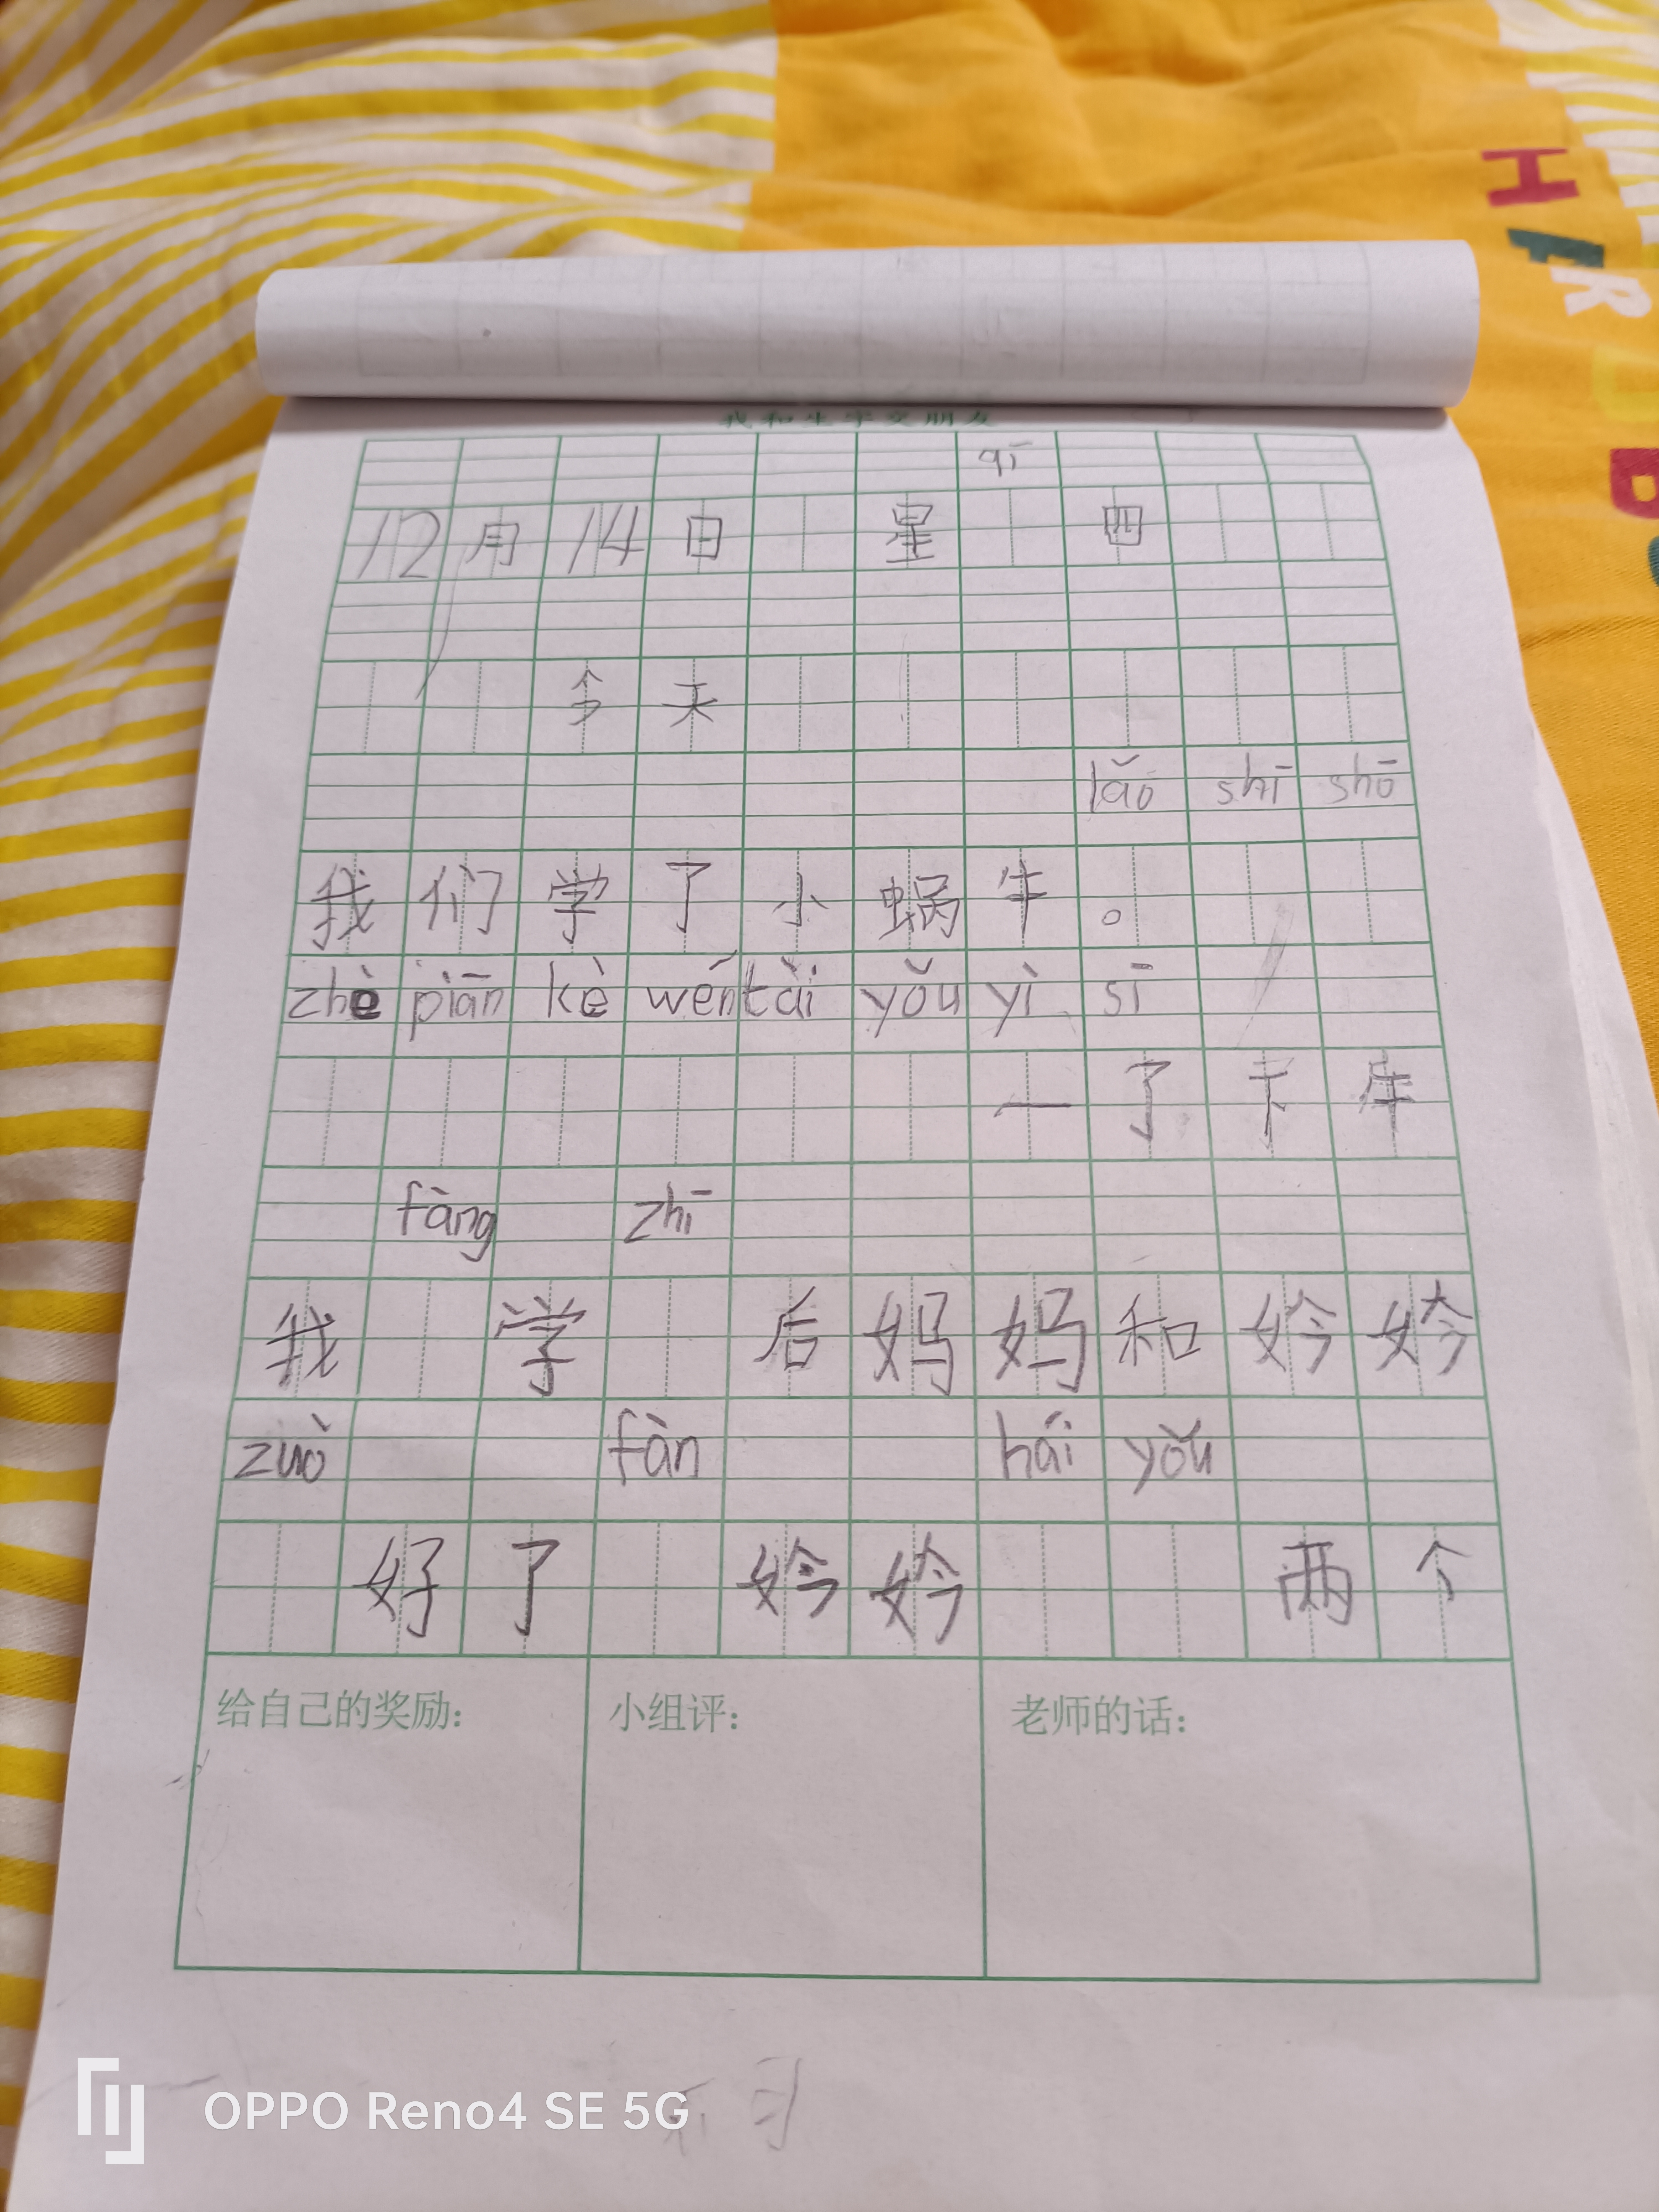 我和生字交朋友
qī
12月14日 星 四
今天
lǎo shī shō
我们学了小蜗牛。
zhè piān kè wén tài yǒu yì sī
一了
fàng zhī
我 学 后妈妈和妗妗
zuò fàn hái yǒu
好了 妗妗 两个
给自己的奖励： 小组评： 老师的话：
OPPO Reno4 SE 5G